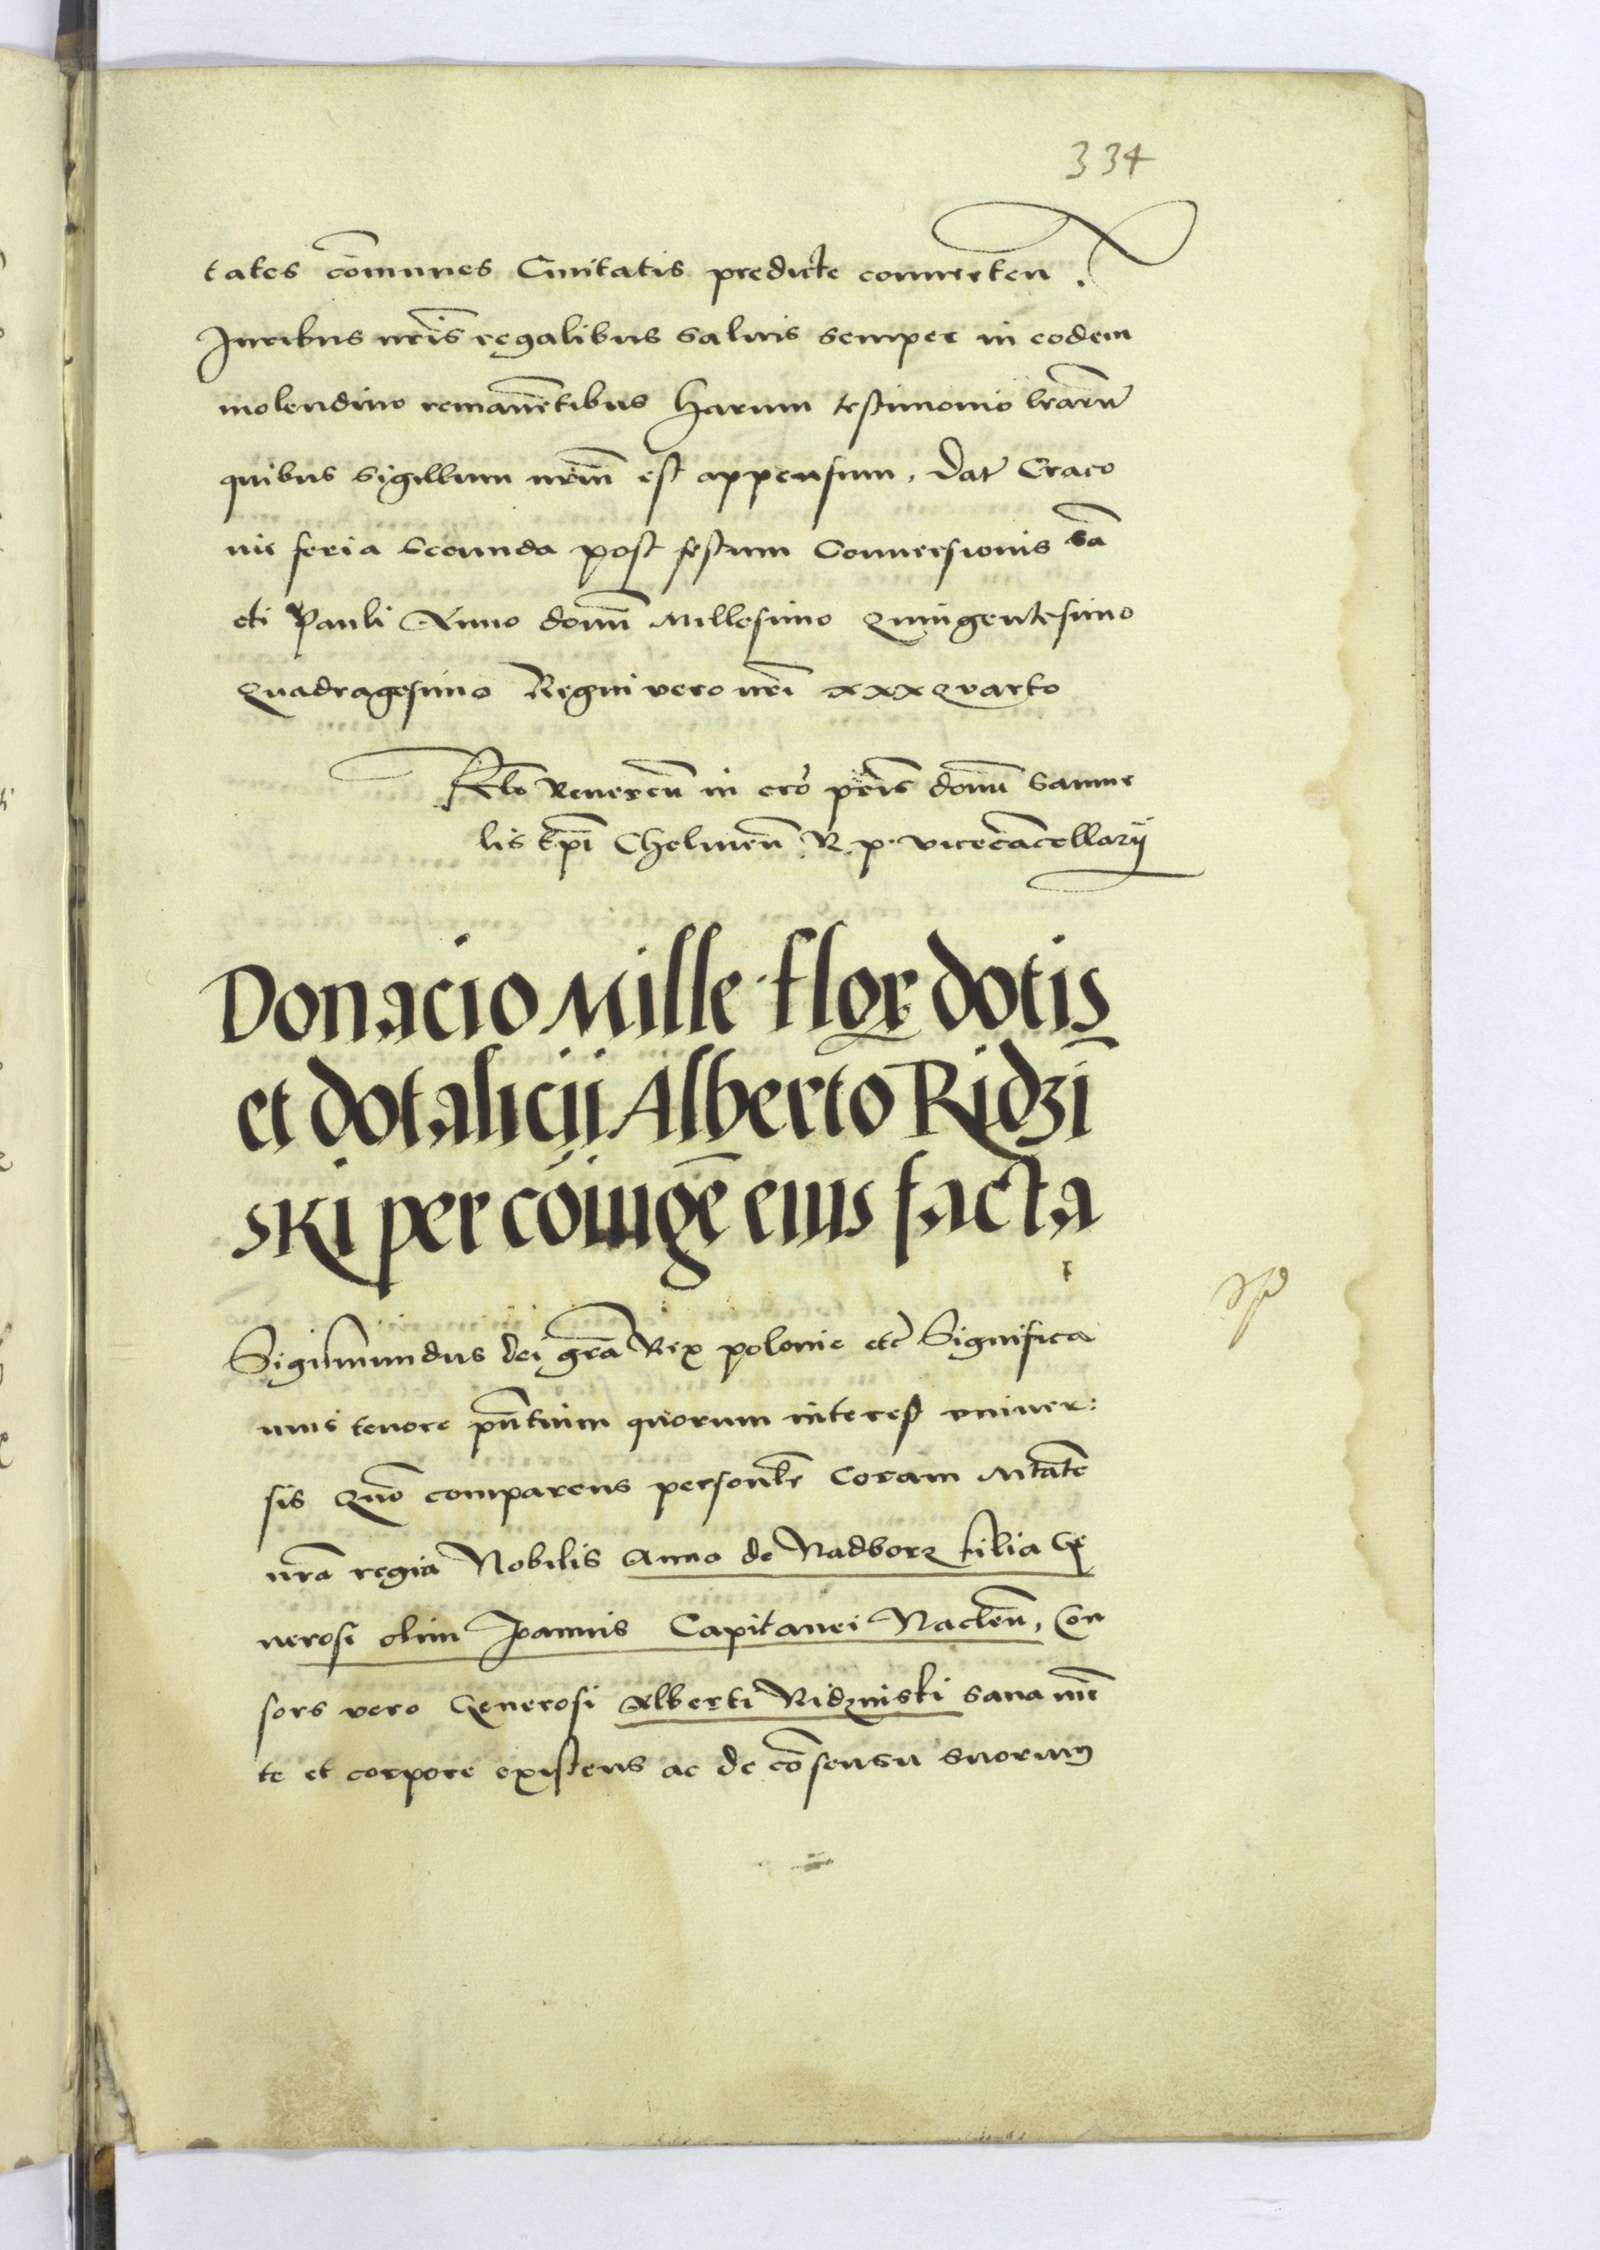 334
tates cōmunes Ciuitatis predicte conuerten.
Juribus nrīs regalibus saluis semper in eodem
molendino remanētibus Harum testimonio lrarū
quibus sigillum nrm̄ est appensum, Dat Craco
uie feria secunda post festum Conuersionis sā
cti Pauli Anno domī Millesimo Quingentesimo
Quadragesimo Regni vero nrī xxxquarto
Rlō Reueren̄ in crō prīs domī Samue
lis Epī Chelmen̄ R. p. vicecācellarij
Donacio Mille flor dotis
et dotalicij Alberto Ridzī
ski per cōiugē eius facta
Sigismundus dei grā Rex polonie etc Significa
mus tenore pn̄tium quorum interest vniuer:
sis Quō comparens personlr̄ Coram Mtāte
nrā regia Nobilis Anna de Nadborz filia Ge
nerosi olim Joannis Capitanei Naclen̄, Con
sors vero Generosi Alberti Ridzinski sana mē
te et corpore existens ac de cōsensu suorum